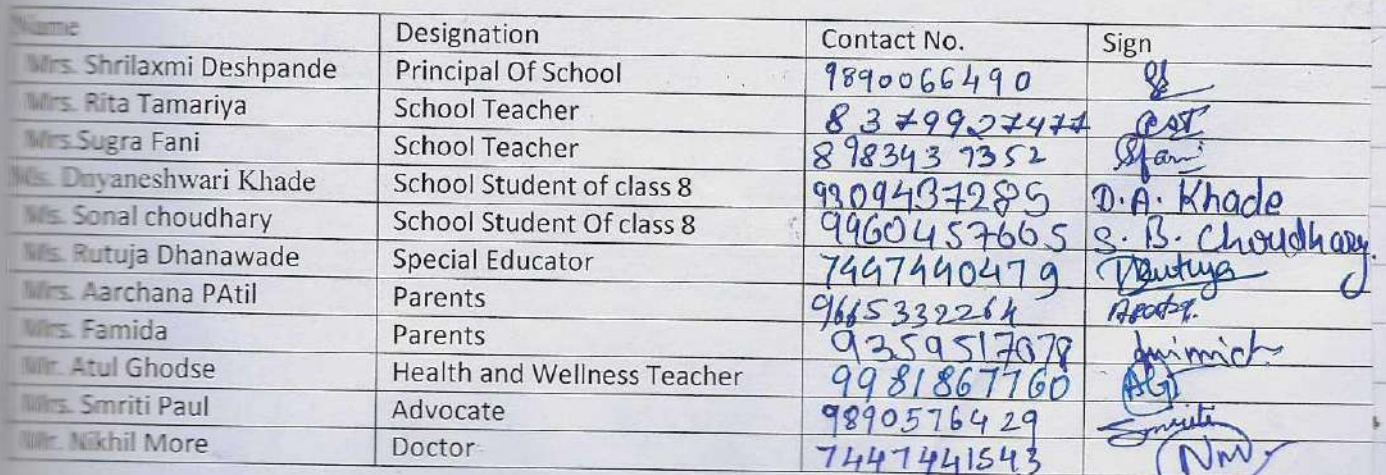 Name Designation Contact No. Sign
Mrs. Shrilaxmi Deshpande Principal Of School 9890066490
Mrs. Rita Tamariya School Teacher 8379927477
Mrs Sugra Fani School Teacher 8983437352 Sfani
Ms. Dnyaneshwari Khade School Student of class 8 9309437285 D.A. Khade
Ms. Sonal choudhary School Student Of class 8 9960457665 S. B. Choudhary.
Ms. Rutuja Dhanawade Special Educator 7447440479
Mrs. Aarchana PAtil Parents 9665332264
Mrs. Famida Parents 9359517078
Mr. Atul Ghodse Health and Wellness Teacher 9981867760 AG
Mrs. Smriti Paul Advocate 9890576429 Smriti
Mr. Nikhil More Doctor 7447441543